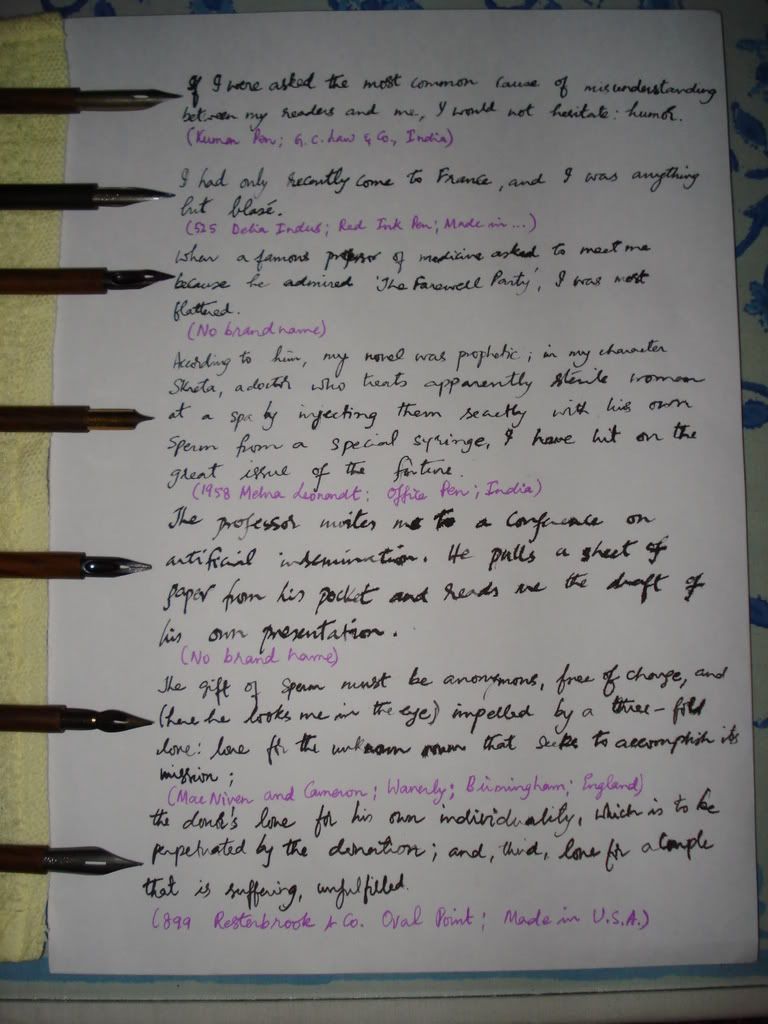 If I were asked the most common cause of misunderstanding
between my readers and me, I would not hesitate: humor.
(Kumar Pen; G.C. Law & Co., India)
I had only recently come to France, and I was anything
but blasé.
(525 Delia Indus; Red Ink Pen; Made in...)
When a famous professor of medicine asked to meet me
because he admired 'The Farewell Party', I was most
flattered.
(No brand name)
According to him, my novel was prophetic; in my character
Skreta, a doctor who treats apparently sterile women
at a spa by injecting them secretly with his own
sperm from a special syringe, I have hit on the
great issue of the
(1958 Office Pen; India)
The professor invites me to a conference on
artificial insemination. He pulls a sheet of
paper from his pocket and reads me the draft of
his own presentation.
(No brand name)
The gift of sperm must be anonymous, free of charge, and
(here he looks me in the eye) impelled by a three-fold
love: love for the unknown that seeks to accomplish its
mission;
(Mac Niven and Cameron; Waverly; Birmingham; England)
the donor's love for his own individuality, which is to be
perpetuated by the donation; and, third, love for a couple
that is suffering, unfulfilled.
(899 Resterbrook & Co. Oval Point; Made in U.S.A.)